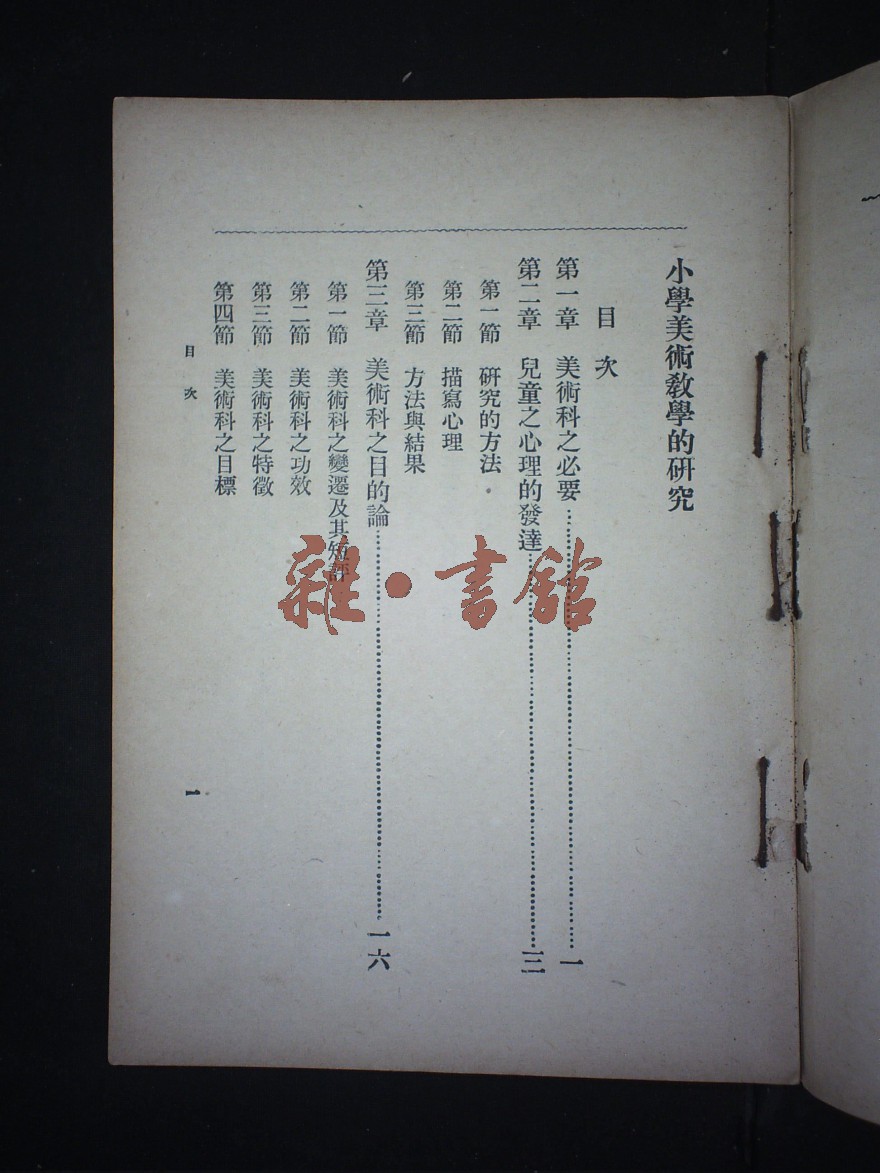 小學美術敎學的硏究
目次
第一章 美術科之必要…………一
第二章 兒童之心理的發達…………三
第一節 硏究的方法
第二節 描寫心理
第三節 方法與結果
第三章 美術科之目的論…………一六
第一節 美術科之變遷及其短評
第二節 美術科之功效
第三節 美術科之特徵
第四節 美術科之目標
目次
一
雜·書館